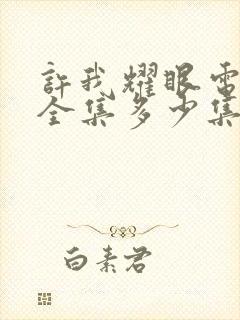 許我耀眼電
全集多少集
白素君